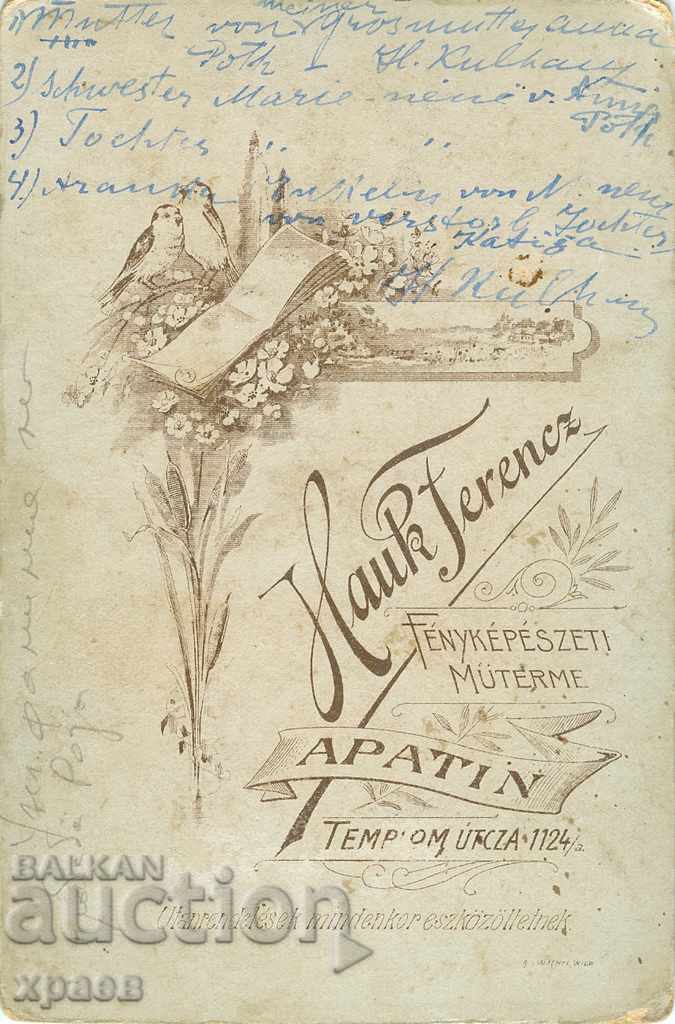 1) Mutter von meiner Grosmutter Anna
Poth - H. Kulhany
2) Schwester Marie néné v. Anna
Poth
3) Tochter " "
4.) Enkelin von M. néné
von verstorb. Tochter
Katiza
H. Kulhany
Hauk Ferencz
FÉNYKÉPÉSZETI
MŰTERME
APATIN
TEMPLOM ÚTCZA 1124/a.
Utánrendelések mindenkor eszközöltetnek.
BALKAN
auction
храов